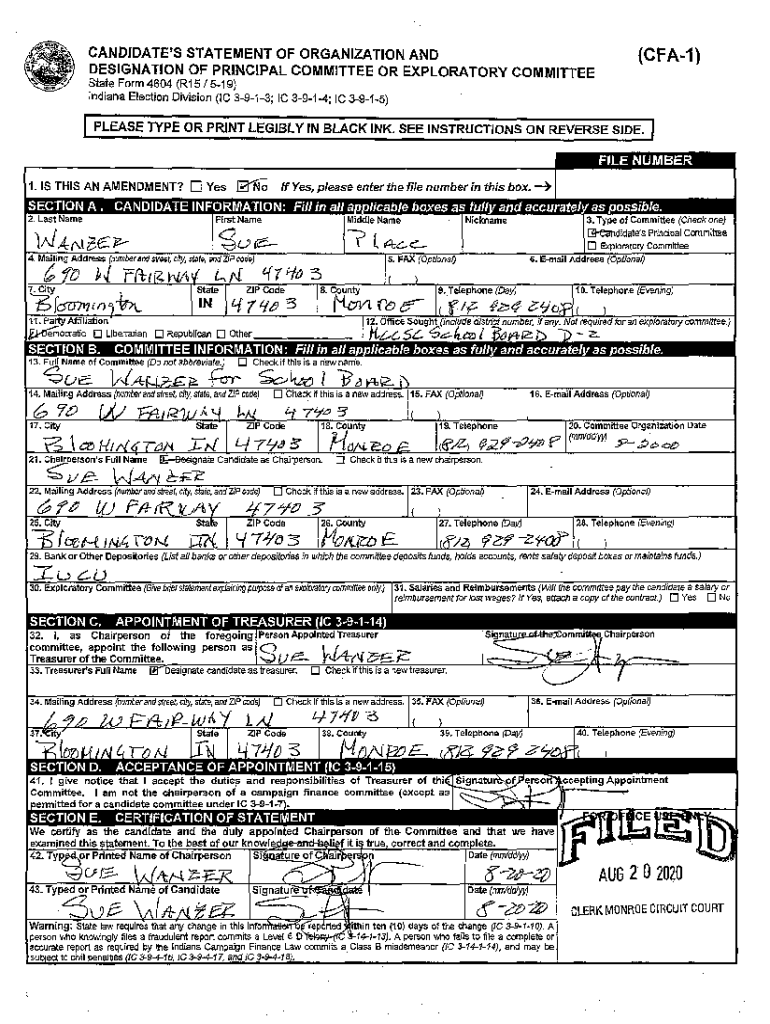 CANDIDATE'S STATEMENT OF ORGANIZATION AND
DESIGNATION OF PRINCIPAL COMMITTEE OR EXPLORATORY COMMITTEE
(CFA-1)
State Form 4604 (R15 / 5-19)
Indiana Election Division (IC 3-9-1-3; IC 3-9-1-4; IC 3-9-1-5)
PLEASE TYPE OR PRINT LEGIBLY IN BLACK INK. SEE INSTRUCTIONS ON REVERSE SIDE.
FILE NUMBER
1. IS THIS AN AMENDMENT? Yes No If Yes, please enter the file number in this box. →
SECTION A. CANDIDATE INFORMATION: Fill in all applicable boxes as fully and accurately as possible.
2. Last Name First Name Middle Name Nickname 3. Type of Committee (Check one)
WANZER SUE PLACE Candidate's Principal Committee
Exploratory Committee
4. Mailing Address (number and street, city, state, and ZIP code) 5. FAX (Optional) 6. E-mail Address (Optional)
690 W FAIRWAY LN 47403 ( )
7. City State ZIP Code 8. County 9. Telephone (Day) 10. Telephone (Evening)
Bloomington IN 47403 MONROE (812 929 2408 ( )
11. Party Affiliation 12. Office Sought (Include district number, if any. Not required for an exploratory committee.)
Democratic Libertarian Republican Other MCCSC School BOARD D-2
SECTION B. COMMITTEE INFORMATION: Fill in all applicable boxes as fully and accurately as possible.
13. Full Name of Committee (Do not abbreviate.) Check if this is a new name.
SUE WANZER for School BOARD
14. Mailing Address (number and street, city, state, and ZIP code) Check if this is a new address. 15. FAX (Optional) 16. E-mail Address (Optional)
690 W FAIRWAY LN 47403 ( )
17. City State ZIP Code 18. County 19. Telephone 20. Committee Organization Date
(mm/dd/yy)
BLOOMINGTON IN 47403 MONROE (812, 929-2408 8-2000
21. Chairperson's Full Name Designate Candidate as Chairperson. Check if this is a new chairperson.
SUE WANZER
22. Mailing Address (number and street, city, state, and ZIP code) Check if this is a new address. 23. FAX (Optional) 24. E-mail Address (Optional)
690 W FAIRWAY 47403 ( )
25. City State ZIP Code 26. County 27. Telephone (Day) 28. Telephone (Evening)
BLOOMINGTON IN 47403 MONROE (812, 929-2408 ( )
29. Bank or Other Depositories (List all banks or other depositories in which the committee deposits funds, holds accounts, rents safety deposit boxes or maintains funds.)
IUCU
30. Exploratory Committee (Give brief statement explaining purpose of an exploratory committee only.) 31. Salaries and Reimbursements (Will the committee pay the candidate a salary or
reimbursement for lost wages? If Yes, attach a copy of the contract.) Yes No
SECTION C. APPOINTMENT OF TREASURER (IC 3-9-1-14)
32. I, as Chairperson of the foregoing Person Appointed Treasurer Signature of the Committee Chairperson
committee, appoint the following person as SUE WANZER
Treasurer of the Committee.
33. Treasurer's Full Name Designate candidate as treasurer. Check if this is a new treasurer.
34. Mailing Address (number and street, city, state, and ZIP code) Check if this is a new address. 35. FAX (Optional) 36. E-mail Address (Optional)
690 W FAIRWAY LN 47403 ( )
37. City State ZIP Code 38. County 39. Telephone (Day) 40. Telephone (Evening)
BLOOMINGTON IN 47403 MONROE (812 929 2408 ( )
SECTION D. ACCEPTANCE OF APPOINTMENT (IC 3-9-1-15)
41. I give notice that I accept the duties and responsibilities of Treasurer of this Signature of Person Accepting Appointment
Committee. I am not the chairperson of a campaign finance committee (except as
permitted for a candidate committee under IC 3-9-1-7).
SECTION E. CERTIFICATION OF STATEMENT FOR OFFICE USE ONLY
We certify as the candidate and the duly appointed Chairperson of the Committee and that we have
examined this statement. To the best of our knowledge and belief it is true, correct and complete.
FILED
42. Typed or Printed Name of Chairperson Signature of Chairperson Date (mm/dd/yy)
SUE WANZER 8-20-20
AUG 20 2020
43. Typed or Printed Name of Candidate Signature of Candidate Date (mm/dd/yy)
SUE WANZER 8-2020
CLERK MONROE CIRCUIT COURT
Warning: State law requires that any change in this information be reported within ten (10) days of the change (IC 3-9-1-10). A
person who knowingly files a fraudulent report commits a Level 6 D felony (IC 3-14-1-13). A person who fails to file a complete or
accurate report as required by the Indiana Campaign Finance Law commits a Class B misdemeanor (IC 3-14-1-14), and may be
subject to civil penalties (IC 3-9-4-16, IC 3-9-4-17, and IC 3-9-4-18).